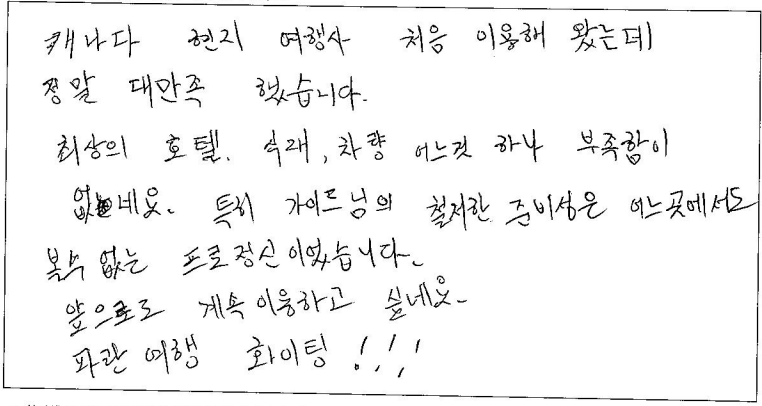 캐나다 현지 여행사 처음 이용해 왔는데
정말 대만족 했습니다.
최상의 호텔. 식래, 차량 어느것 하나 부족함이
없네요. 특히 가이드님의 철저한 준비성은 어느곳에서도
볼수 없는 프로정신이었습니다.
앞으로도 계속이용하고 싶네요.
파란여행 화이팅!!!!